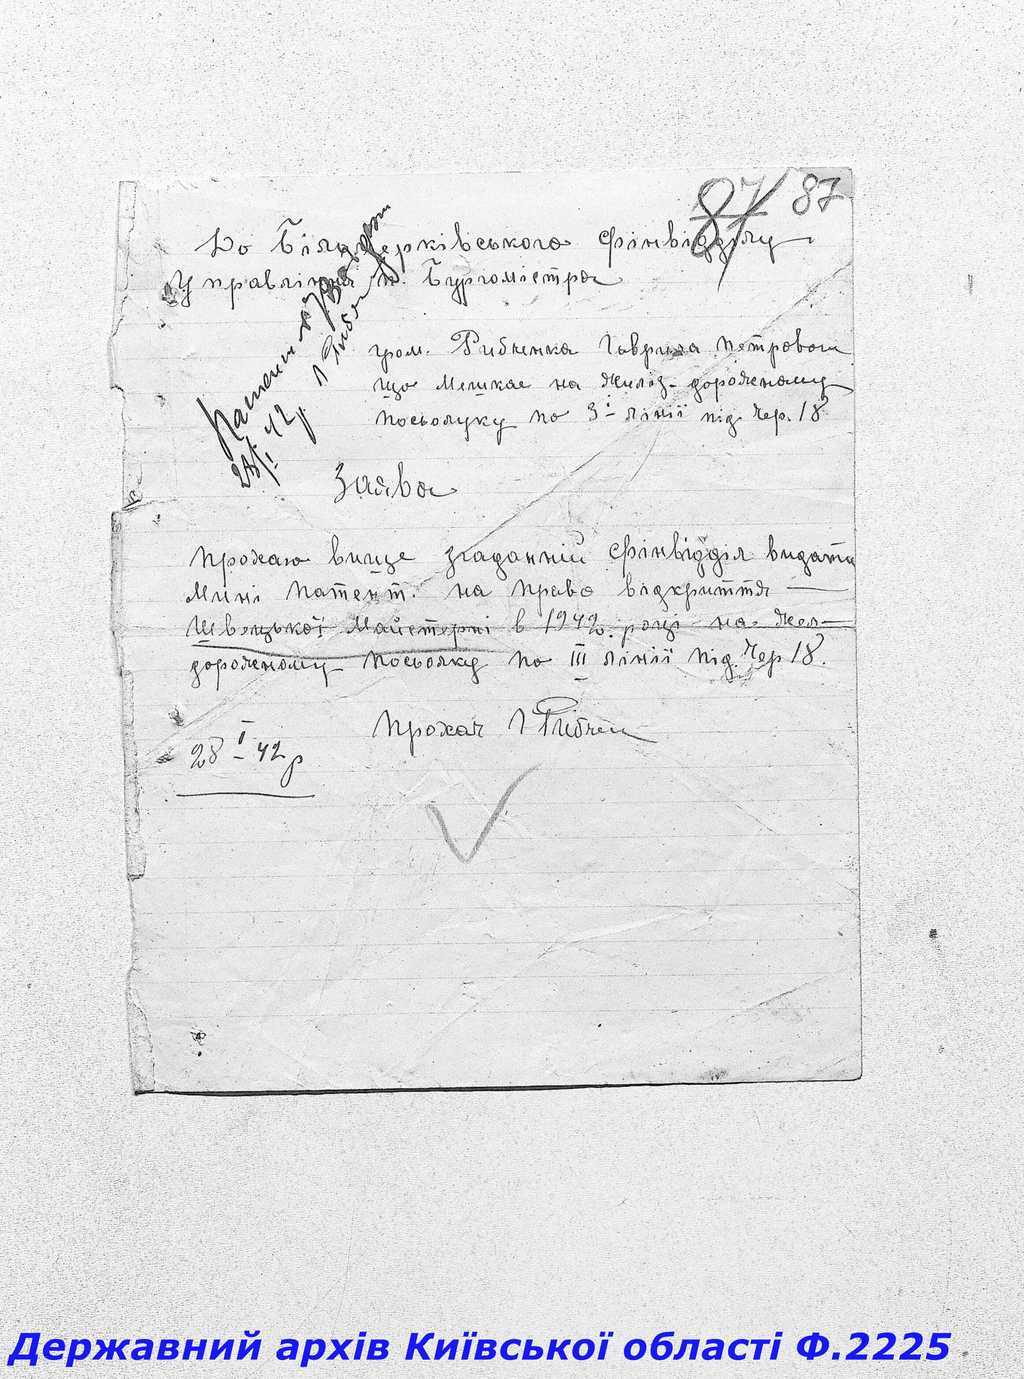 87 87
До Біло Церківського фінвідділу
Управління п. Бургомістра
гром. Рибченка Гаврила Петровоч
Що Мешкає на Желіз-дорожному
посьолку по 3ⁱ лінії під чер. 18
Патент
28/I 42 р.
Заява
Прохаю вище згаданній фінвідділ видати
Мині Патент. на право відкриття
Швецької Майстерні в 1942 році на Жел-
дорожному посьолку по III лінії під. Чер 18.
Прохач Г Рибчен
28 I – 42 р
Державний архів Київської області Ф.2225